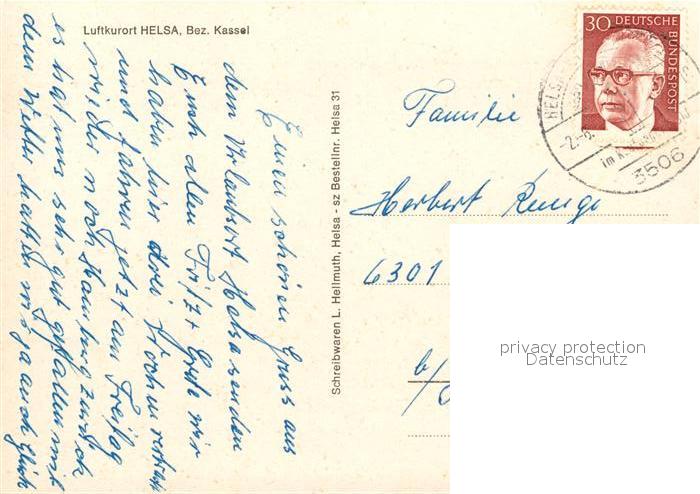 Luftkurort HELSA, Bez. Kassel
Einen schönen Gruss aus
dem Urlaubsort Helsa senden
Euch allen Fritz + Grete wir
haben hier drei Wochen verbracht
und fahren jetzt am Freitag
wieder nach Hamburg zurück
es hat uns sehr gut gefallen mit
dem Wetter hatten wir ja auch Glück
Schreibwaren L. Hellmuth, Helsa - sz Bestellnr. Helsa 31
30 DEUTSCHE BUNDESPOST
HELSA
3506
Familie
Herbert Runge
6301
b/
privacy protection
Datenschutz